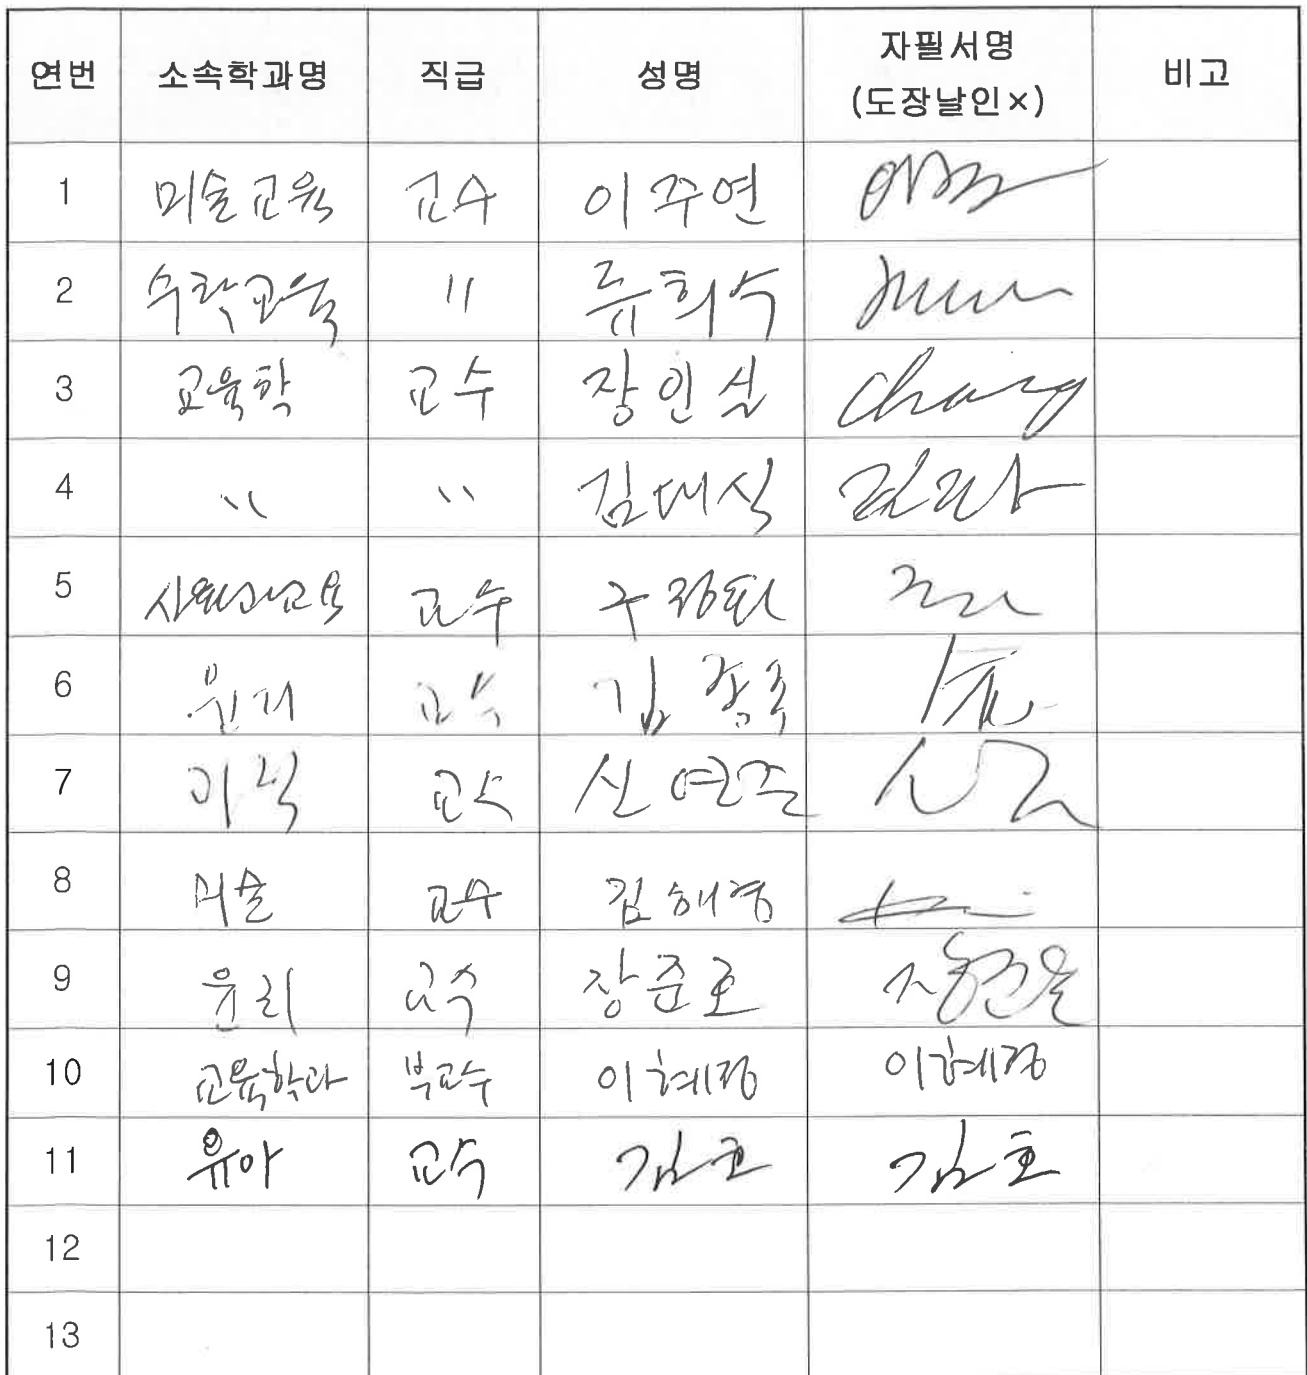 연번 소속학과명 직급 성명 자필서명 비고
(도장날인×)
1 미술교육 교수 이주연
2 수학교육 〃 류희수
3 교육학 교수 장인실 Chang
4 〃 〃 김대식
5 사회과교육 교수 구정화
6 윤리 교수
7 교수 신연준
8 미술 교수 김해경
9 윤리 교수 장준호
10 교육학과 부교수 이혜정 이혜정
11 유아 교수 김호 김호
12
13